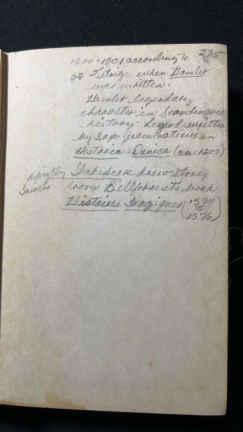 1600-1601 according to
225
of Liturg. when Hamlet
was written.
Hamlet, legendary
character in Scandinavian
history. Legend written
by Saxo Grammaticus in
Historica Danica (ca. 1200)
Shakespeare knew story
from Belleforest's book
Histoires Tragiques (1570
1576)